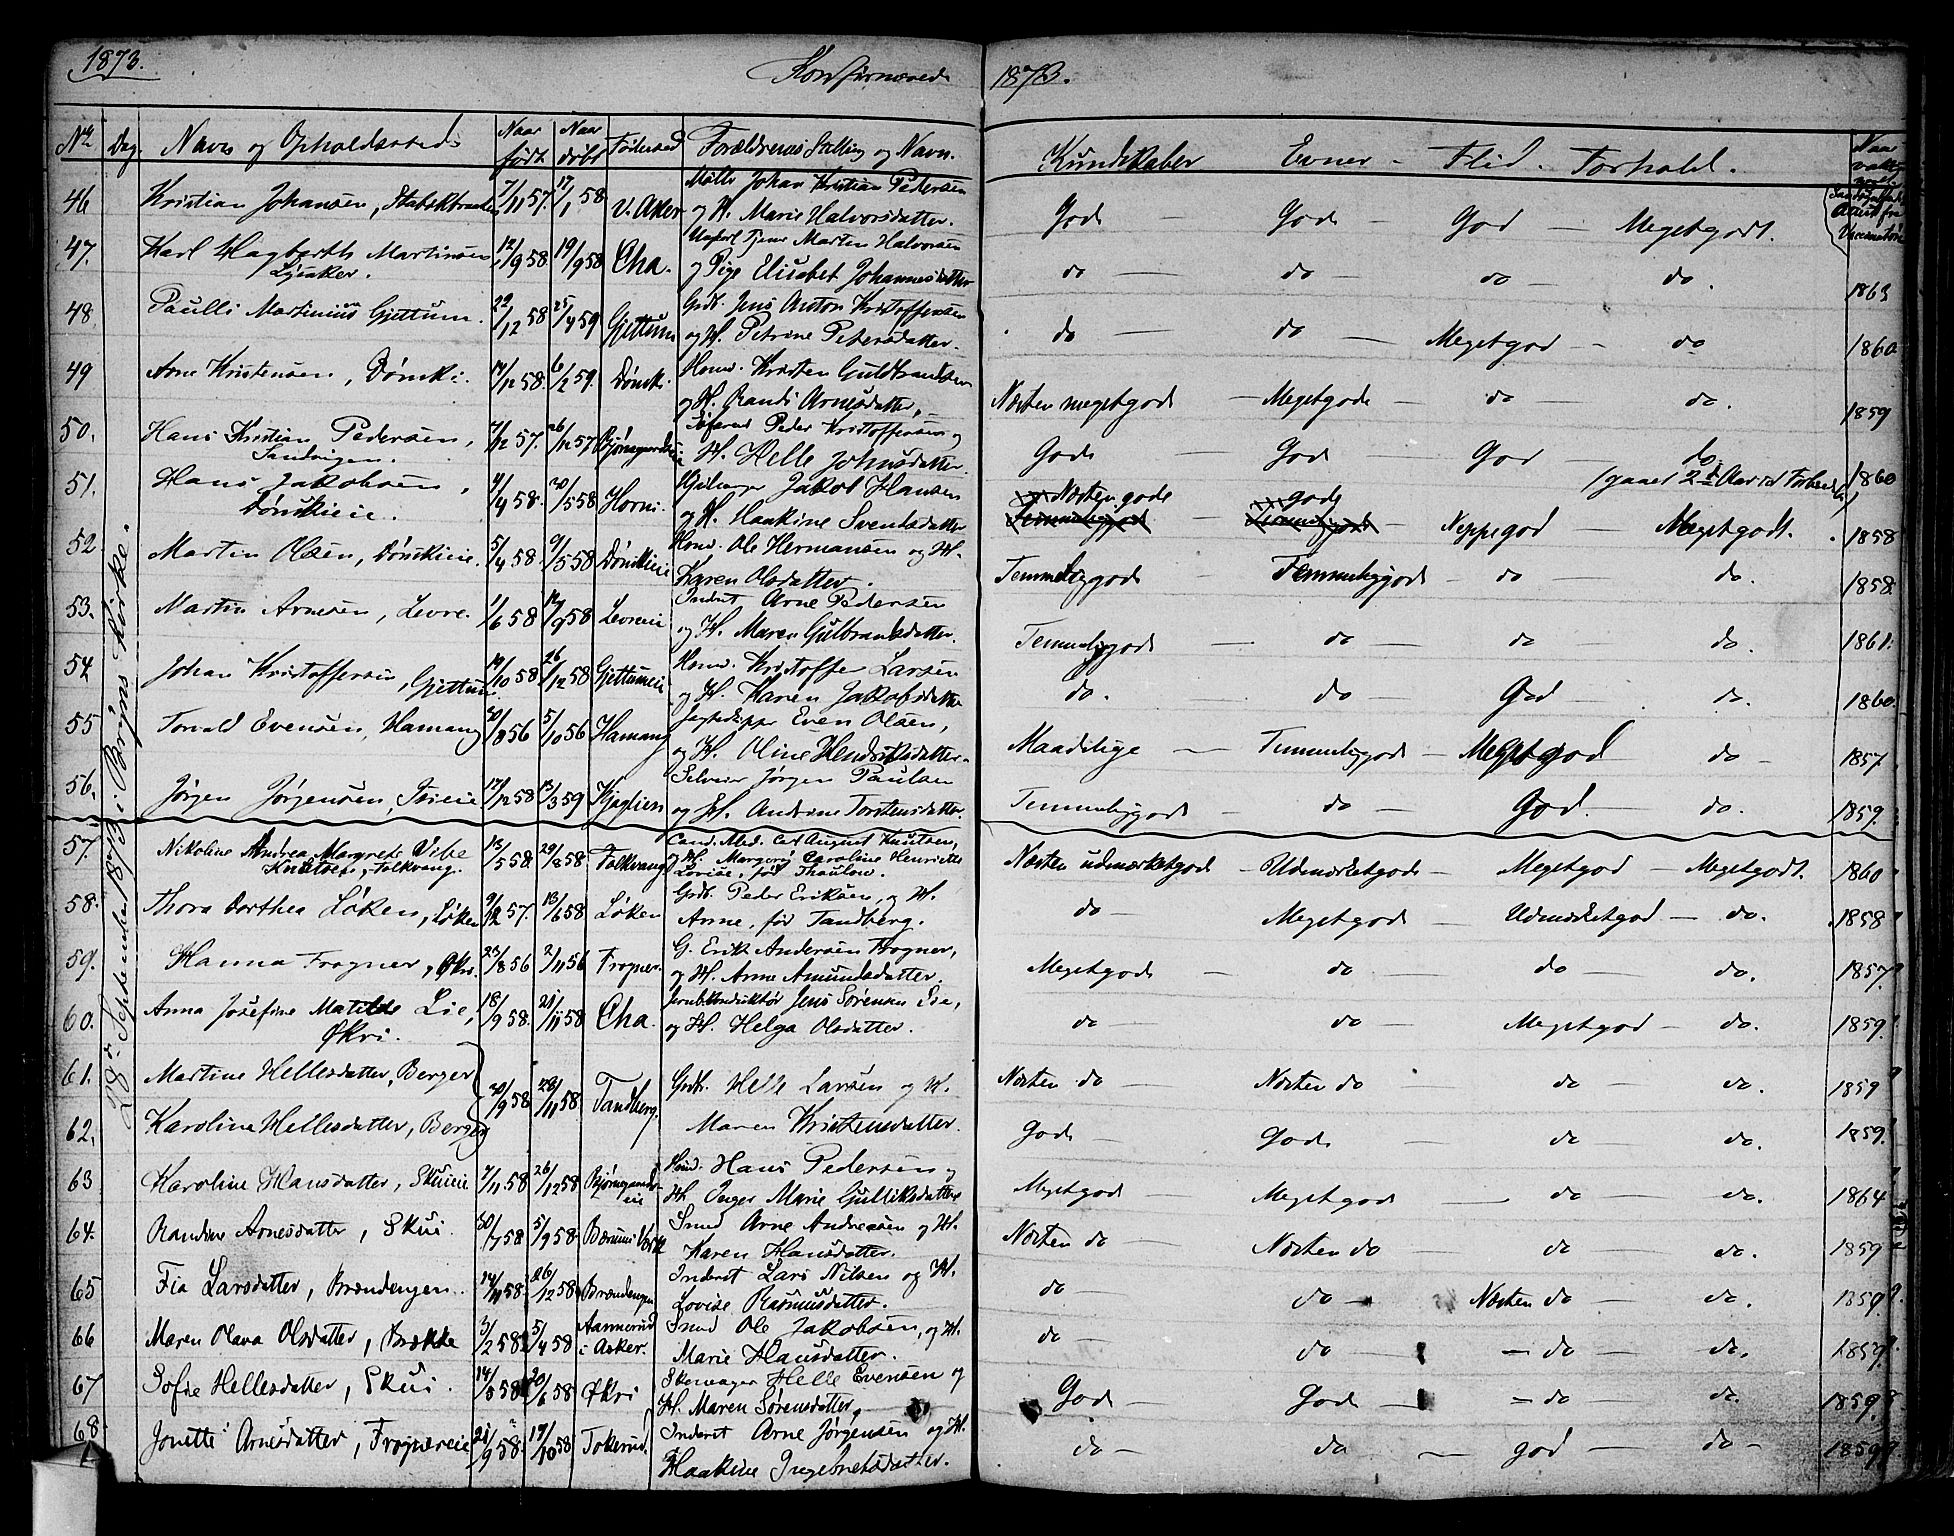 1873. Konfirmerede 1873.
No. Dag. Navn og Opholdssted. Naar født. Naar døbt. Fødested Forældrenes Stilling og Navn. Kundskaber Evner - Flid. Forhold. Naar vakc.
28de September 1873 i Bryns Kirke.
46 Kristian Johansen, 7/11 57. 17/1 58 V. Aker Johan Kristian Pedersen
og H. Marie Halvorsdatter. God God God Megetgodt.
47. Karl Hagbarth Martinsen 12/9 58 19/9 58 Cha. Ungkarl Tjener Marten Halvorsen
Lysaker. og Pige Elisabet Johannesdatter do do do do. 1863
48. Paulli Martinius Gjettum. 22/12 58 25/4 59 Gjettum Grdb. Jens Anton Kristoffersen
og H. Petrine Petersdatter. do do Megetgod do 1860
49 Arne Kristensen, Dønski. 14/12 58. 6/2 59. Dønsk. Husm. Kristen Guldbrandsen
og H. Randi Arnesdatter, Næsten megetgod Megetgod do do. 1859
50. Hans Kristian Pedersen, 7/12 57. 26/12 57 Peder Kristoffersen og
Sandvigen. H. Helle Johnsdatter. God God God do. 1860
51. Hans Jakobsen, 4/4 58. 30/5 58 Horni. Jakob Hansen
Dønskieie. og H. Haakine Svendsdatter Næsten gode gode Neppegod Megetgodt. 1858
52 Martin Olsen, Dønskieie. 5/4 58 9/5 58 Dønskieie Husm. Ole Hermansen og H.
Karen Olsdatter. Temmeliggod Temmeliggod do do. 1858
53. Martin Arnesen, Levre. 1/6 58 19/9 58 Levreeie Inderst Arne Pedersen
og H. Maren Gulbrandsdatter. Temmeliggod do do do 1861.
54 Johan Kristoffersen, Gjettum 19/10 58 26/12 58 Gjettumeie Husm. Kristoffer Larsen
og H. Karen Jakobsdatter do. do God do. 1860.
55 Torvald Evensen, Hamang 30/8 56 5/10 56 Hamang Jagteskipper Even Olsen,
og H. Oline Hendriksdatter. Maadelige Temmeliggod Megetgod do 1857
56. Jørgen Jørgensen, 17/12 58 13/3 59 Kjaglien Selveier Jørgen Paulsen
og H. Andrine Torstensdatter. Temmeliggod do God. do. 1859.
57. Nikoline Andrea Margrete Vibe 13/5 58 29/8 58 Falkvang Cand. Med. Carl August Knutsen,
Knutsen, Falkvang. og H. Margery Caroline Henriette
Lovise, før Thaulow. Næsten udmærketgod Udmærketgod Megetgod Megetgodt. 1860
58. Thora Dorthea Løken, Løken 9/12 57. 13/6 58 Løken Grdb. Peder Eriksen, og H.
Anne, før Tandberg. do Megetgod Udmærketgod do. 1858
59. Hanna Frogner, Økri. 23/8 56 2/11 56 Frogner G. Erik Andersen Frogner,
og H. Anne Amundsdatter. Megetgod do do do. 1857?
60. Anna Josefine Matilde Lie, 18/9 58. 21/11 58 Cha. Jernb. Konduktør Jens Sørensen Lie,
Økri. og H. Helga Olsdatter. do do Megetgod do. 1859?
61. Martine Hellesdatter, Berger 30/9 58 28/11 58. Tandberg. Grdb. Helle Larsen og H. Næsten do Næsten do do do. 1859?
62. Karoline Hellesdatter, Berger Maren Kristensdatter. God God do do. 1859?
63 Karoline Hansdatter, Skuieie 7/11 58 26/12 58 Bjørnegaardseie Husm. Hans Pedersen og
H. Inger Marie Gulliksdatter Megetgod Megetgod do do. 1864
64. Randine Arnesdatter, Skui. 30/7 58 5/9 58. Bærums Værk Smed Arne Andresen og H.
Karen Hansdatter. Næsten do Næsten do do do. 1859
65 Fia Larsdatter, Brændengen. 14/11 58 26/12 58 Brændengen Inderst Lars Nilsen og H.
Lovise Rasmusdatter. do do Næsten do do. 1859?
66 Maren Olava Olsdatter, Brække 3/2 58 5/4 58 Aannerud i Asker. Smed Ole Jakobsen, og H.
Marie Hansdatter. do do do do. 1859?
67 Sofie Hellesdatter, Skui. 14/5 58 20/6 58 Økri Helle Evensen og
H. Maren Sørensdatter, God God do do. 1859?
68 Jonette Arnesdatter, Frognereie 21/9 58. 17/10 58 Tokerud. Inderst Arne Jørgensen og H.
Haakine Ingebretsdatter. do do god do 1859?